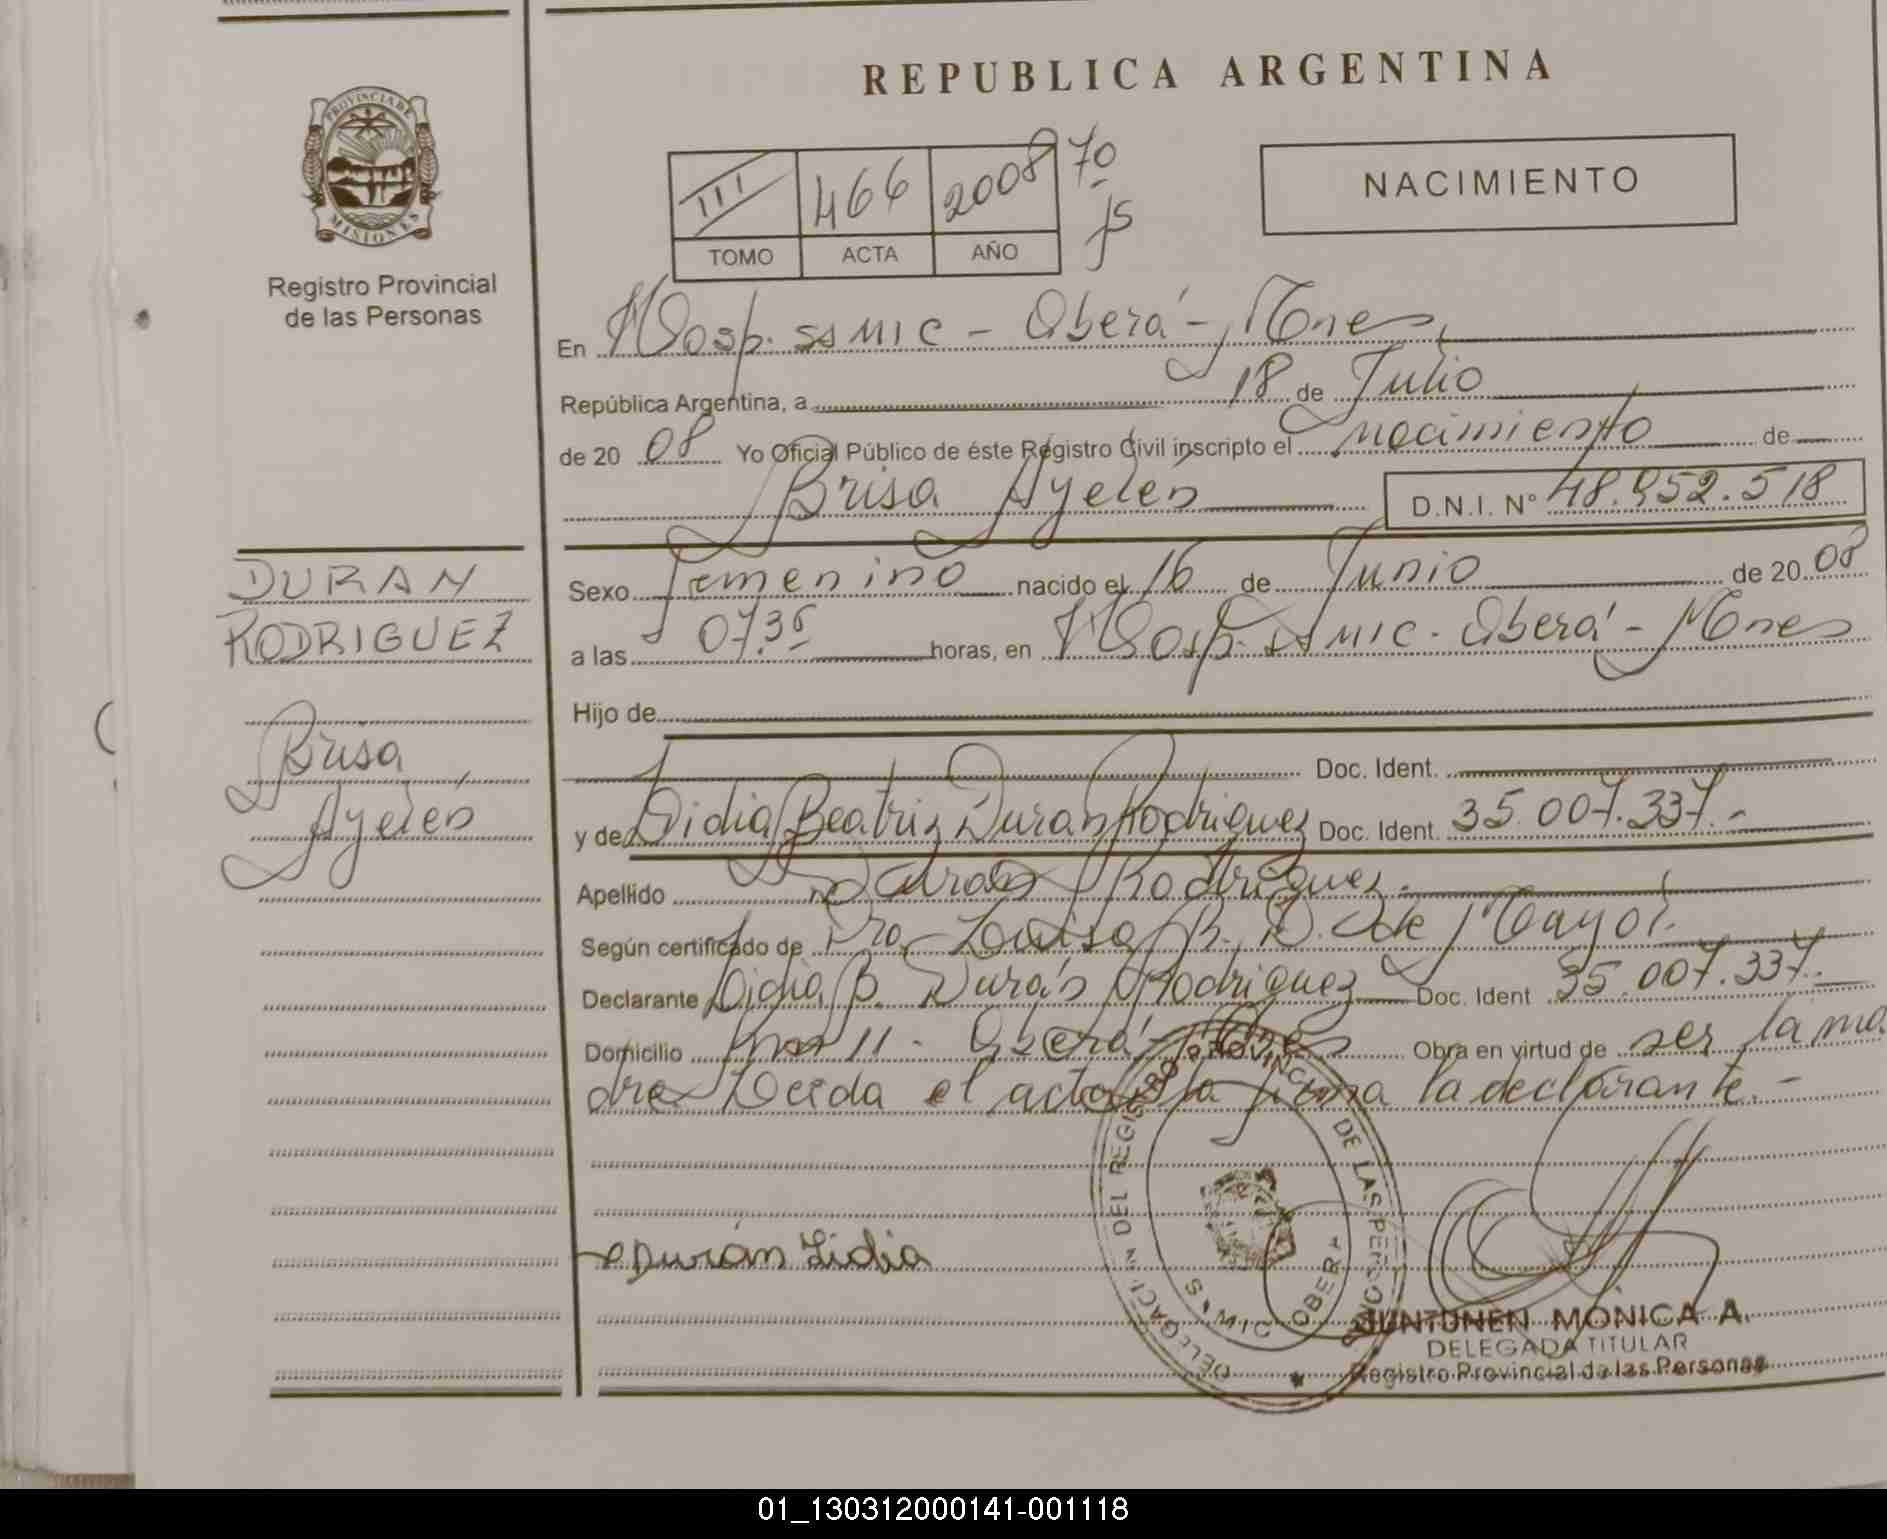 REPUBLICA ARGENTINA
PROVINCIA DE
MISIONES
Registro Provincial
de las Personas
III 466 2008 70
TOMO ACTA AÑO
NACIMIENTO
En Hosp. SSMIC - Oberá - Mnes,
República Argentina, a 18 de Julio
de 20 08 Yo Oficial Público de éste Registro Civil inscripto el nacimiento de
Brisa Ayelén D.N.I. Nº 48.952.518
DURAN
RODRIGUEZ
Brisa
Ayelén
Sexo Femenino nacido el 16 de Junio de 20 08
a las 07.35 horas, en Hosp. SSMIC - Oberá - Mnes
Hijo de
Doc. Ident.
y de Lidia Beatriz Durán Rodriguez Doc. Ident. 35.007.337.-
Apellido Durán Rodriguez.
Según certificado de Dra. Louisa B. D. de Mayol.
Declarante Lidia B. Durán Rodriguez Doc. Ident 35.007.337.
Domicilio Km 11 - Oberá - Mnes Obra en virtud de ser la ma
dre Leida el acta la firma la declarante.-
Durán Lidia
DELEGACIÓN DEL REGISTRO PROVINCIAL DE LAS PERSONAS
MIC OBERA
JUNTUNEN MÓNICA A.
DELEGADA TITULAR
Registro Provincial de las Personas
01_130312000141-001118